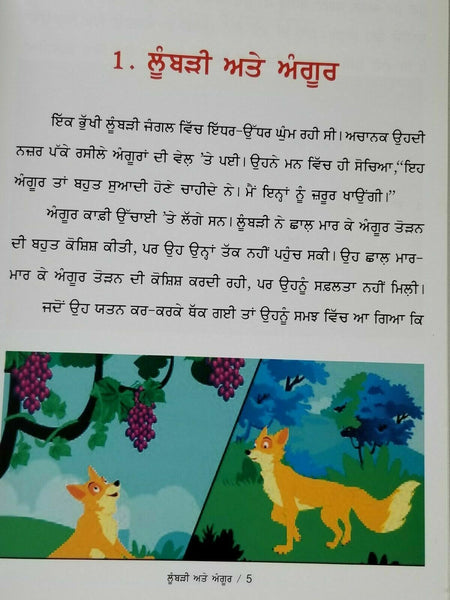 1. ਲੂੰਬੜੀ ਅਤੇ ਅੰਗੂਰ
ਇੱਕ ਭੁੱਖੀ ਲੂੰਬੜੀ ਜੰਗਲ ਵਿੱਚ ਇੱਧਰ-ਉੱਧਰ ਘੁੰਮ ਰਹੀ ਸੀ। ਅਚਾਨਕ ਉਹਦੀ
ਨਜ਼ਰ ਪੱਕੇ ਰਸੀਲੇ ਅੰਗੂਰਾਂ ਦੀ ਵੇਲ 'ਤੇ ਪਈ। ਉਹਨੇ ਮਨ ਵਿੱਚ ਹੀ ਸੋਚਿਆ,“ਇਹ
ਅੰਗੂਰ ਤਾਂ ਬਹੁਤ ਸੁਆਦੀ ਹੋਣੇ ਚਾਹੀਦੇ ਨੇ। ਮੈਂ ਇਨ੍ਹਾਂ ਨੂੰ ਜ਼ਰੂਰ ਖਾਉਂਗੀ।”
ਅੰਗੂਰ ਕਾਫ਼ੀ ਉੱਚਾਈ 'ਤੇ ਲੱਗੇ ਸਨ। ਲੂੰਬੜੀ ਨੇ ਛਾਲ਼ ਮਾਰ ਕੇ ਅੰਗੂਰ ਤੋੜਨ
ਦੀ ਬਹੁਤ ਕੋਸ਼ਿਸ਼ ਕੀਤੀ, ਪਰ ਉਹ ਉਨ੍ਹਾਂ ਤੱਕ ਨਹੀਂ ਪਹੁੰਚ ਸਕੀ। ਉਹ ਛਾਲ਼ ਮਾਰ-
ਮਾਰ ਕੇ ਅੰਗੂਰ ਤੋੜਨ ਦੀ ਕੋਸ਼ਿਸ਼ ਕਰਦੀ ਰਹੀ, ਪਰ ਉਹਨੂੰ ਸਫ਼ਲਤਾ ਨਹੀਂ ਮਿਲੀ।
ਜਦੋਂ ਉਹ ਯਤਨ ਕਰ-ਕਰਕੇ ਥੱਕ ਗਈ ਤਾਂ ਉਹਨੂੰ ਸਮਝ ਵਿੱਚ ਆ ਗਿਆ ਕਿ
ਲੂੰਬੜੀ ਅਤੇ ਅੰਗੂਰ / 5